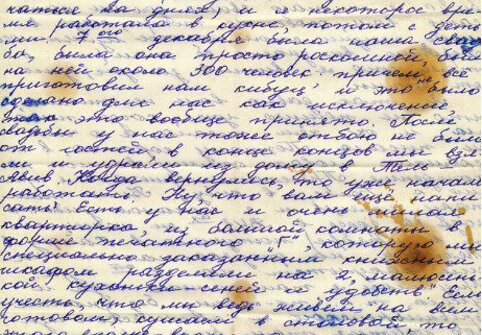 чаться на днях) и я некоторое вре
мя работала в кухне, потом с деть
ми. 7 ого декабря была наша свадь
ба, была она просто роскошной, было
на ней около 500 человек причём, всё
приготовил нам кибуц, и это не было
сделано для нас как исключение
так это вообще принято. После
свадьбы у нас тоже отбою не было
от гостей, в конце концов мы взя
ли и удрали из дому в Тель
Авив. Когда вернулись, то уже начали
работать. Ну, что вам ещё напи
сать? Есть у нас и очень милая
квартирка, из большой комнаты в
форме печатного "Г", которую мы
специально заказанным книжным
шкафом разделили на 2, малюсень
кой кухоньки-сеней и "удобств". Если
учесть, что мы ведь живём на всем
готовом, кушаем в столовой, то